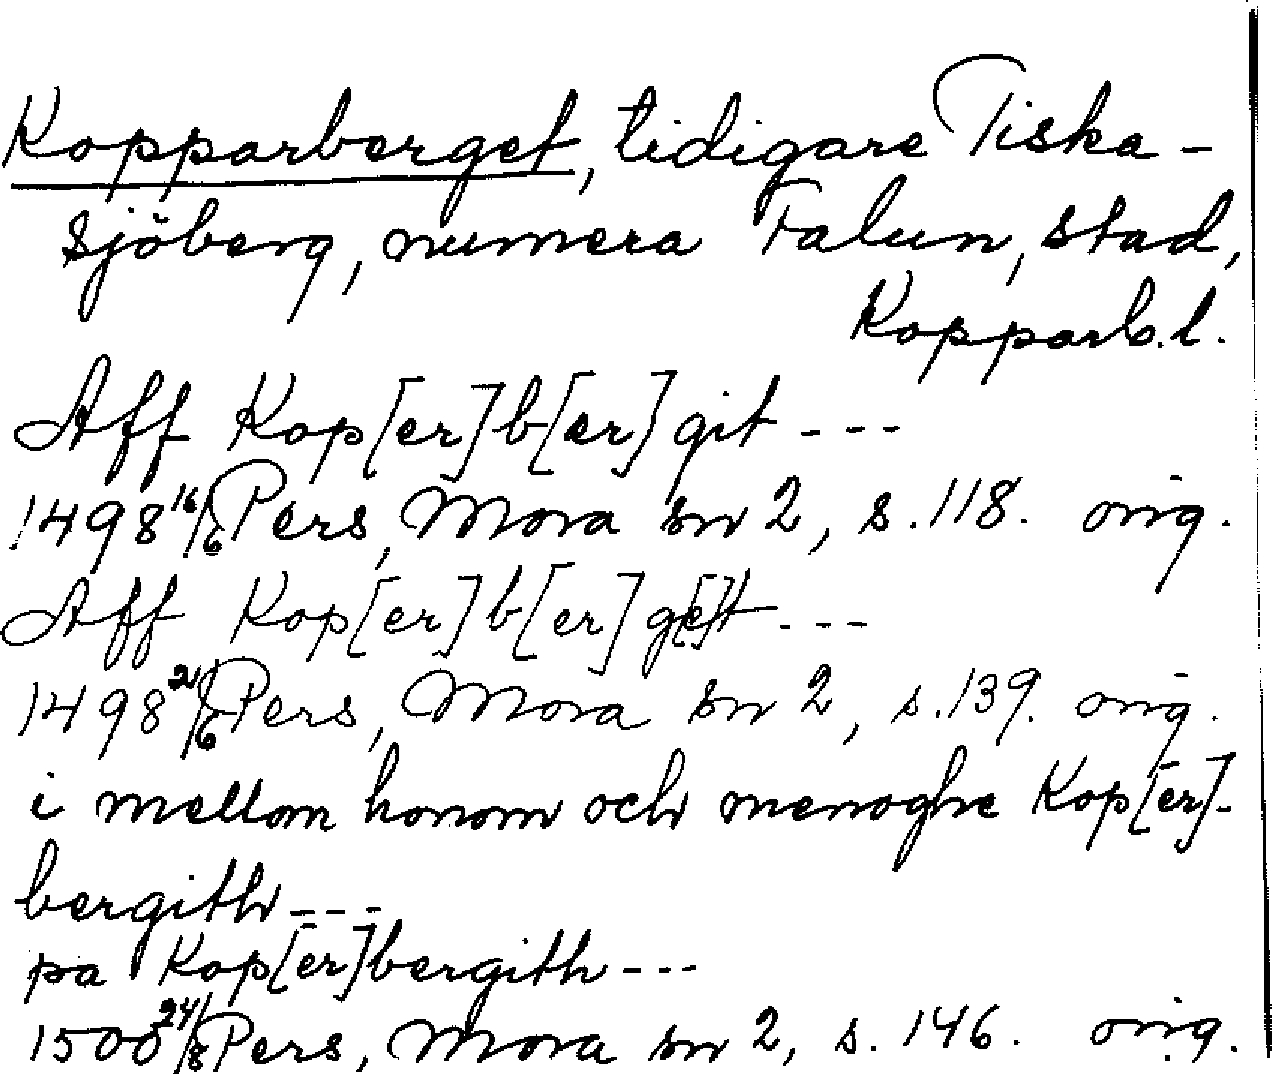 Kopparberget, tidigare Tiska-
sjöberg, numera Falun, stad,
Kopparb.l.
Aff Kop[er]b[er]git ---
1498 16/6 Pers, Mora sn 2, s.118. orig.
Aff Kop[er]b[er]g[e]t ---
1498 21/6 Pers, Mora sn 2, s.139. orig.
i mellom honom och menoghe Kop[er]-
bergith ---
pa Kop[er]bergith ---
1500 24/8 Pers, Mora sn 2, s. 146. orig.